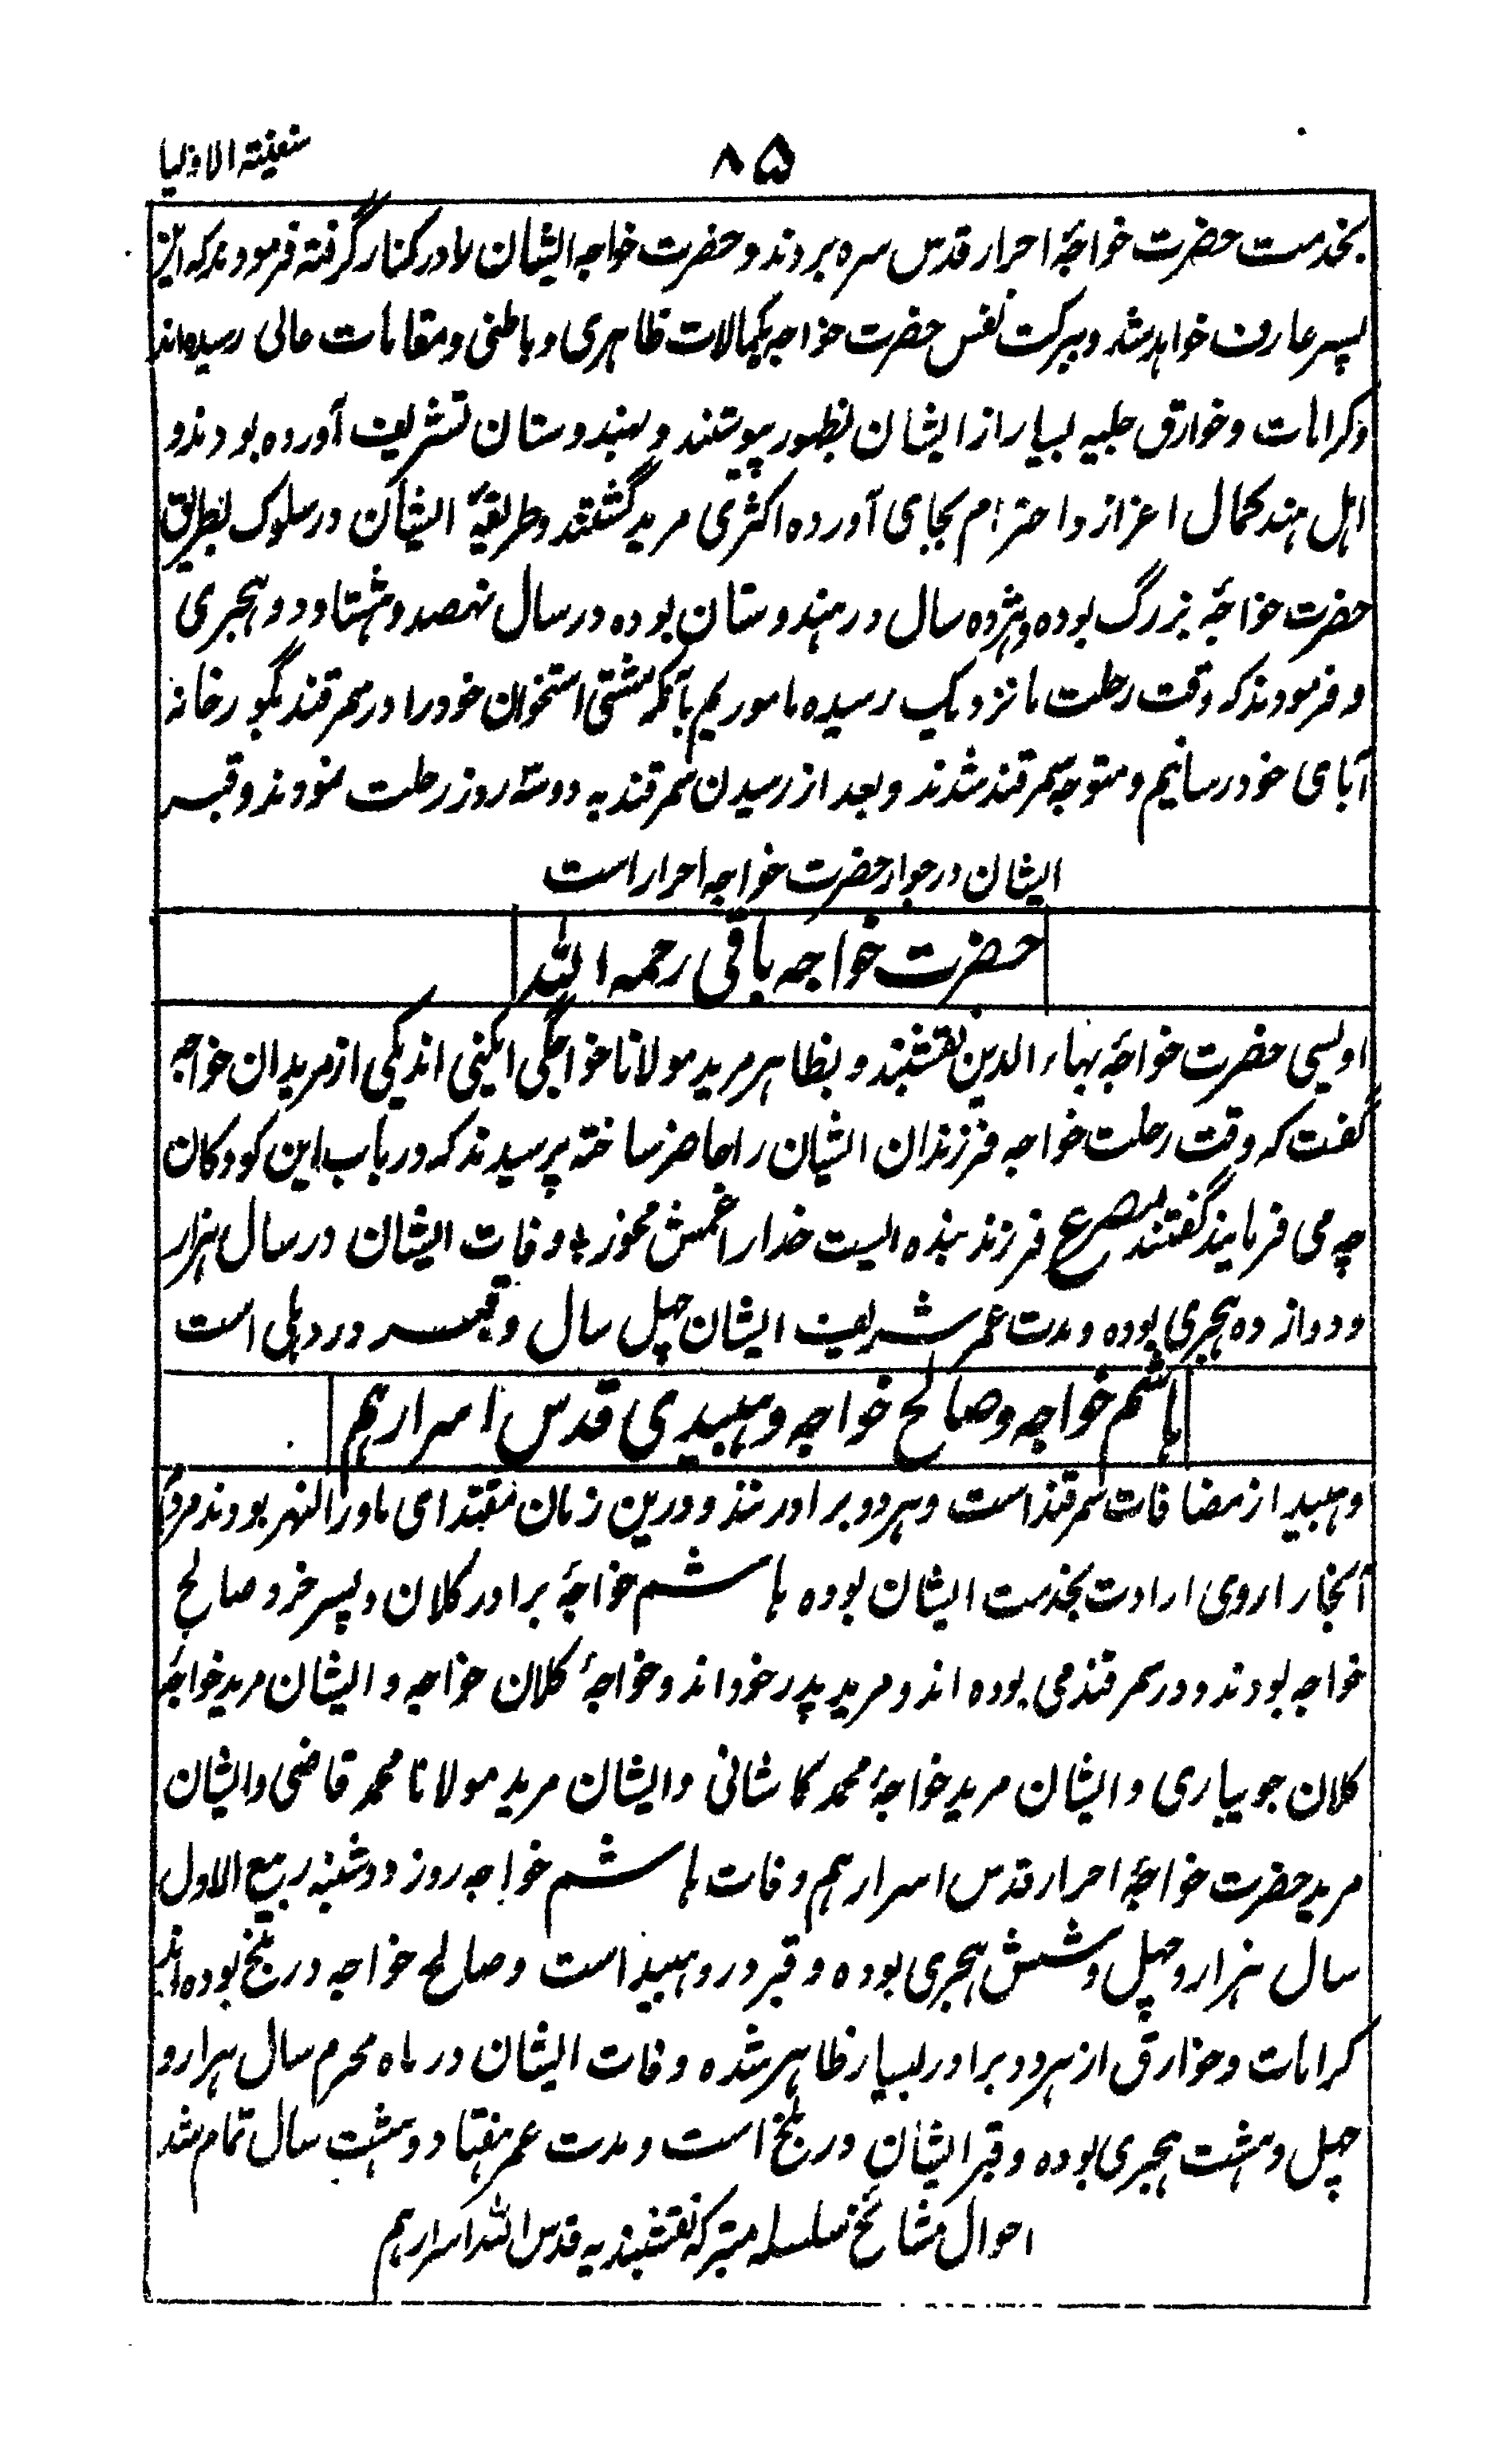 سفینة الاولیا
۸۵
بخدمت حضرت خواجهٔ احرار قدس سره بردند و حضرت خواجه ایشان را در کنار گرفته فرمودند که این
پسر عارف خواهد شد و ببرکت نفس حضرت خواجه بکمالات ظاهری و باطنی و مقامات عالی رسیده‌اند
و کرامات و خوارق جلیه بسیار از ایشان بظهور پیوستند و بهندوستان تشریف آورده بودند و
اهل هند کمال اعزاز و احترام بجای آورده اکثری مرید گشتند و طریقهٔ ایشان در سلوک بطریق
حضرت خواجهٔ بزرگ بوده و هژده سال در هندوستان بوده در سال نهصد و هشتاد و دو هجری
و فرمودند که وقت رحلت ما نزدیک رسیده ماموریم بآنکه مشتی استخوان خود را در سمرقند بگورخانه
آبای خود رسانیم و متوجه سمرقند شدند و بعد از رسیدن سمرقند به دو سه روز رحلت نمودند و قبر
ایشان در جوار حضرت خواجه احرار است
حضرت خواجه باقی رحمه الله
اویسی حضرت خواجهٔ بهاء الدین نقشبند و بظاهر مرید مولانا خواجگی امکنگی اند یکی از مریدان خواجه
گفت که وقت رحلت خواجه فرزندان ایشان را حاضر ساخته پرسیدند که در باب این کودکان
چه می فرمایند گفتند مصرع فرزند بنده ایست خدا را غمش مخور ؛ وفات ایشان در سال هزار
و دوازده هجری بوده و مدت عمر شریف ایشان چهل سال و قبر در دهلی است
هاشم خواجه و صالح خواجه وهبیدی قدس اسرارهم
وهبید از مضافات سمرقند است و هر دو برادرند و درین زمان مقتدای ماوراالنهر بودند مردم
آنجا را روی ارادت بخدمت ایشان بوده هاشم خواجهٔ برادر کلان و پسر خرد صالح
خواجه بودند و در سمرقند می بوده اند و مرید پدر خود اند و خواجهٔ کلان خواجه و ایشان مرید خواجهٔ
کلان جویباری و ایشان مرید خواجهٔ محمد کاشانی و ایشان مرید مولانا محمد قاضی و ایشان
مرید حضرت خواجهٔ احرار قدس اسرارهم وفات هاشم خواجه روز دوشنبه ربیع الاول
سال هزار و چهل و شش هجری بوده و قبر در وهبید است و صالح خواجه در بلخ بوده اند
کرامات و خوارق از هر دو برادر بسیار ظاهر شده وفات ایشان در ماه محرم سال هزار و
چهل و هشت هجری بوده و قبر ایشان در بلخ است و مدت عمر هفتاد و هشت سال تمام شد
احوال مشائخ سلسله متبرکه نقشبندیه قدس الله اسرارهم